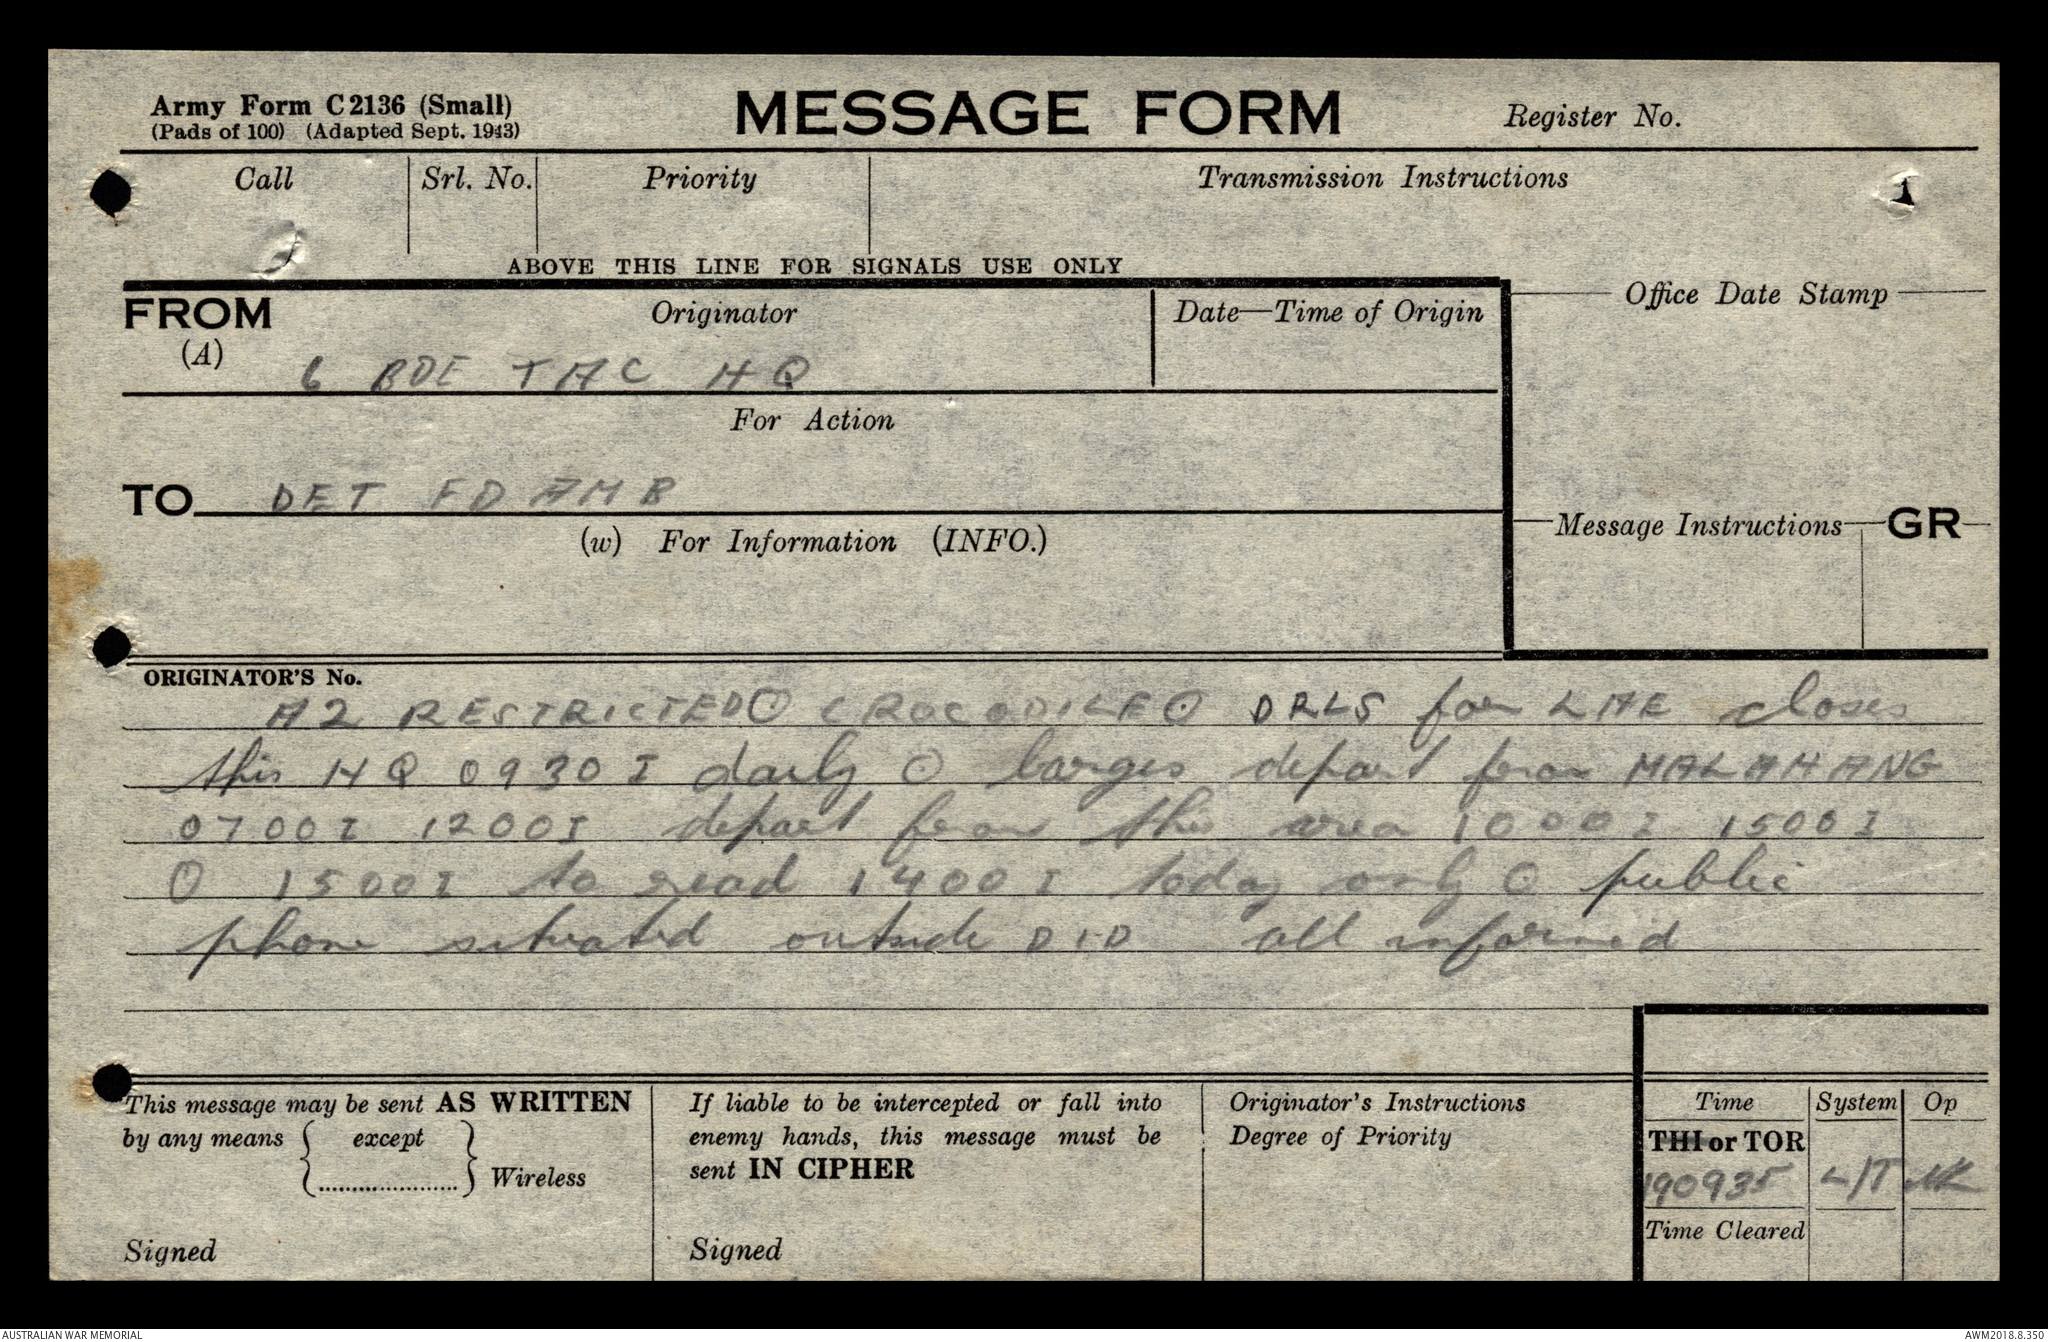 Army Form C2136 (Small)
(Pads of 100) (Adapted Sept. 1943)
MESSAGE FORM
Register No.
Call
Srl. No.
Priority
Transmission Instructions
1
ABOVE THIS LINE FOR SIGNALS USE ONLY
FROM
(A)
Originator
Date—Time of Origin
Office Date Stamp
6 BDE TAC HQ
For Action
TO DET FD AMB
(w) For Information (INFO.)
Message Instructions GR
ORIGINATOR'S No.
A2 RESTRICTED ⊙ CROCODILE ⊙ DRLS for LAE closes
this HQ 0930I daily ⊙ barges depart from MALAHANG
0700I 1200I depart from this area 1000I 1500I
⊙ 1500I to read 1400I today only ⊙ public
phone situated outside DID all informed
This message may be sent AS WRITTEN
by any means { except
.....................} Wireless
Signed
If liable to be intercepted or fall into
enemy hands, this message must be
sent IN CIPHER
Signed
Originator's Instructions
Degree of Priority
Time
System
Op
THI or TOR
190935
L/T
Time Cleared
AUSTRALIAN WAR MEMORIAL
AWM2018.8.350